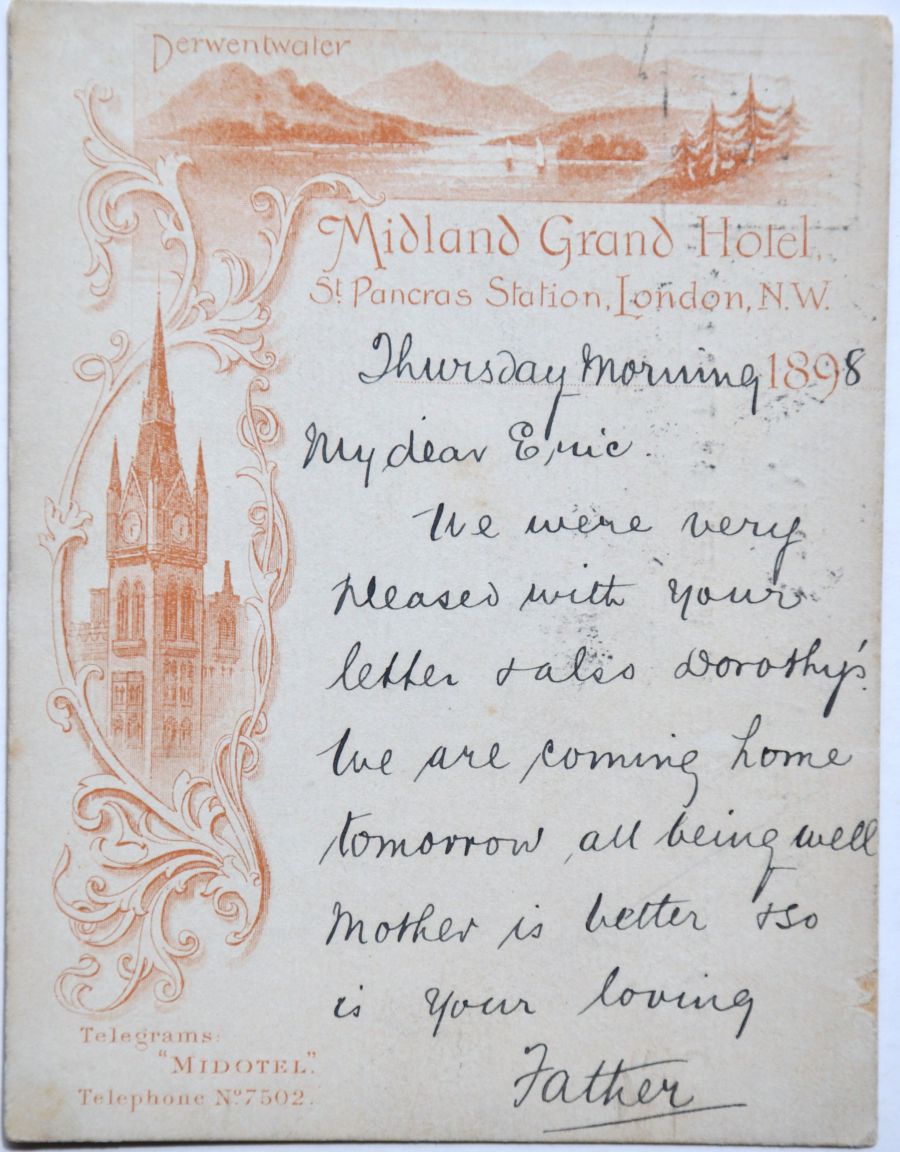 Derwentwater
Midland Grand Hotel,
St Pancras Station, London, N.W.
Thursday Morning 1898
My dear Eric.
We were very
pleased with your
letter & also Dorothy's.
We are coming home
tomorrow all being well
Mother is better & so
is your loving
Father
Telegrams:
"MIDOTEL".
Telephone No. 7502.